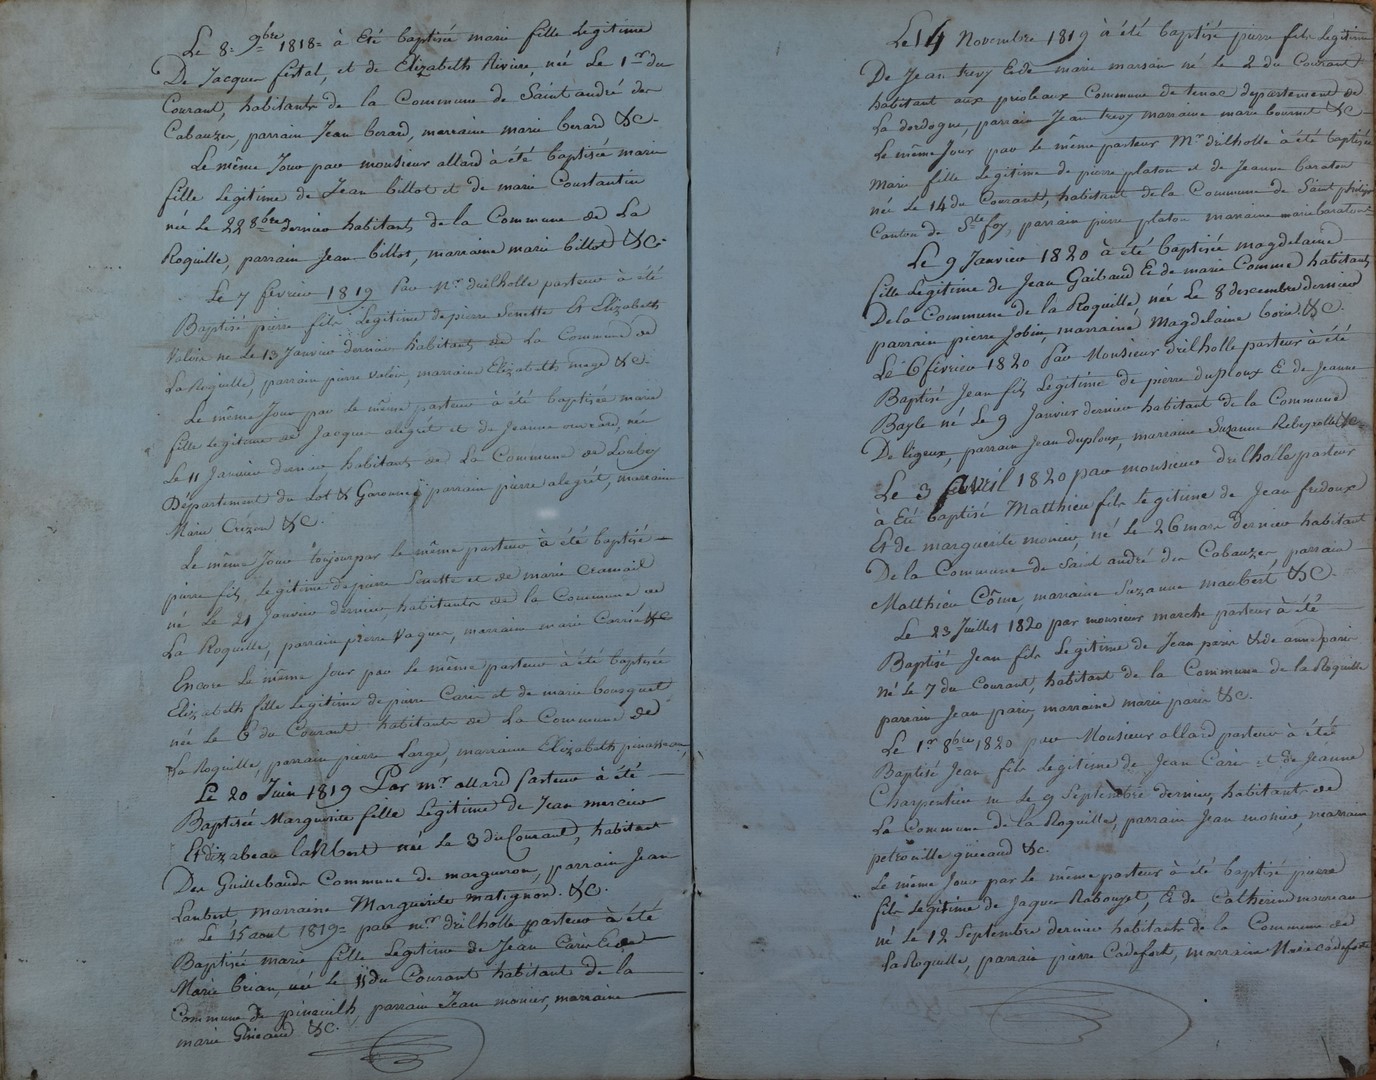 Le 8= 9bre 1818= à Eté baptisée marie fille Legitime
De Jacques fertal, et de Elizabeth Riviere, née Le 1er du
Courant, habitants de la Commune de Saint andré des
Cabauzes, parrain Jean berard, marraine marie berard &C-
Le même Jour par monsieur allard à été baptisée marie
fille Legitime de Jean billot et de marie Constantin
née le 22 8bre dernier habitants de la Commune de La
Roquille, parrain Jean billot, marraine marie billot &C-
Le 7 fevrier 1819 Par Mr drilholle pasteur à été
Baptisé pierre fils Legitime de pierre Senette Et Elizabeth
Valoir né Le 13 Janvier dernier habitants de La Commune de
La Roquille, parrain pierre Valoir, marraine Elizabeth &C.
Le même Jour par Le même pasteur à été baptisée marie
fille Legitime de Jacques alegrêt et de Jeanne née
Le 11 Janvier dernier habitants de La Commune de Loubes
Département du Lot & Garonne parrain pierre alegrêt, marraine
Marie &C.
Le même Jour toujour par le même pasteur à été baptisé
pierre fils Legitime de pierre Senette et de marie
né Le 21 Janvier dernier, habitants de la Commune de
La Roquille, parrain pierre Vaquer, marraine marie Carrié &C
Encore Le même Jour par Le même pasteur à été baptisée
Elizabeth fille Legitime de pierre Carié et de marie bousquet
née Le 6 du Courant habitants de La Commune de
La Roquille, parrain pierre Large, marraine Elizabeth
Le 20 Juin 1819 Par mr. allard Pasteur à été
Baptisée Marguerite fille Legitime de Jean mercier
Et Elizabeau lanbert née Le 3 du Courant, habitant
Des Guillebauds Commune de margueron, parrain Jean
Lanbert, marraine Marguerite matignon. &C.
Le 15 aout 1819= par mr. drilholle pasteur à été
Baptisée marie fille Legitime de Jean Carié Et de
Marie brian, née le 11 du Courant habitant de la
Commune de pineuilh, parrain Jean monier, marraine
marie Gineaud &C.
Le 14 Novembre 1819 à été baptisé pierre fils Legitime
De Jean trevy Et de marie marsain né le 2 du Courant
habitant aux prioleaux Commune de tenac departement de
La dordogne, parrain Jean trevy marraine marie bournet &C
Le même Jour par le même pasteur Mr drilholle à été baptisée
Marie fille Legitime de pierre platon et de Jeanne baraton
née Le 14 du Courant, habitant de la Commune de Saint philipe
Canton de Ste foy, parrain pierre platon marraine marie baraton
Le 9 Janvier 1820 à été baptisée magdelaine
fille Legitime de Jean Gaibaud Et de marie Comme habitants
De la Commune de la Roquille née Le 8 descembre dernier
parrain pierre Jobin, marraine Magdelaine boin. &C.
Le 6 fevrier 1820 Par Monsieur drilholle pasteur à été
Baptisé Jean fils Legitime de pierre duploux Et de Jeanne
Bayle né Le 9 Janvier dernier habitant de la Commune
De ligeux, parrain Jean duploux, marraine Suzanne Rebeyrolle &C
Le 3 Avril 1820 par monsieur drilholle pasteur
à Eté baptisé Matthieu fils Legitime de Jean fridoux
Et de marguerite monier, né Le 26 mars dernier habitant
De la Commune de Saint andré des Cabauzes parrain
Matthieu Côme, marraine Suzanne maubert &C.
Le 23 Juillet 1820 par monsieur marche pasteur à été
Baptisé Jean fils Legitime de Jean paris & de anne paris
né Le 7 du Courant, habitant de la Commune de la Roquille
parrain Jean paris, marraine marie paris &C.
Le 1er 8bre 1820 par Monsieur allard pasteur à été
Baptisé Jean fils Legitime de Jean Carié et de Jeanne
Charpentier né Le 9 Septembre dernier, habitants de
La Commune de la Roquille, parrain Jean monier, marraine
petrouille gineaud &C.
Le même Jour par le même pasteur à été baptisé pierre
fils Legitime de Jaques Rabouyet, Et de Catherine moureau
né le 12 Septembre dernier habitants de la Commune de
La Roquille, parrain pierre Cadefort, marraine Marie Cadefort